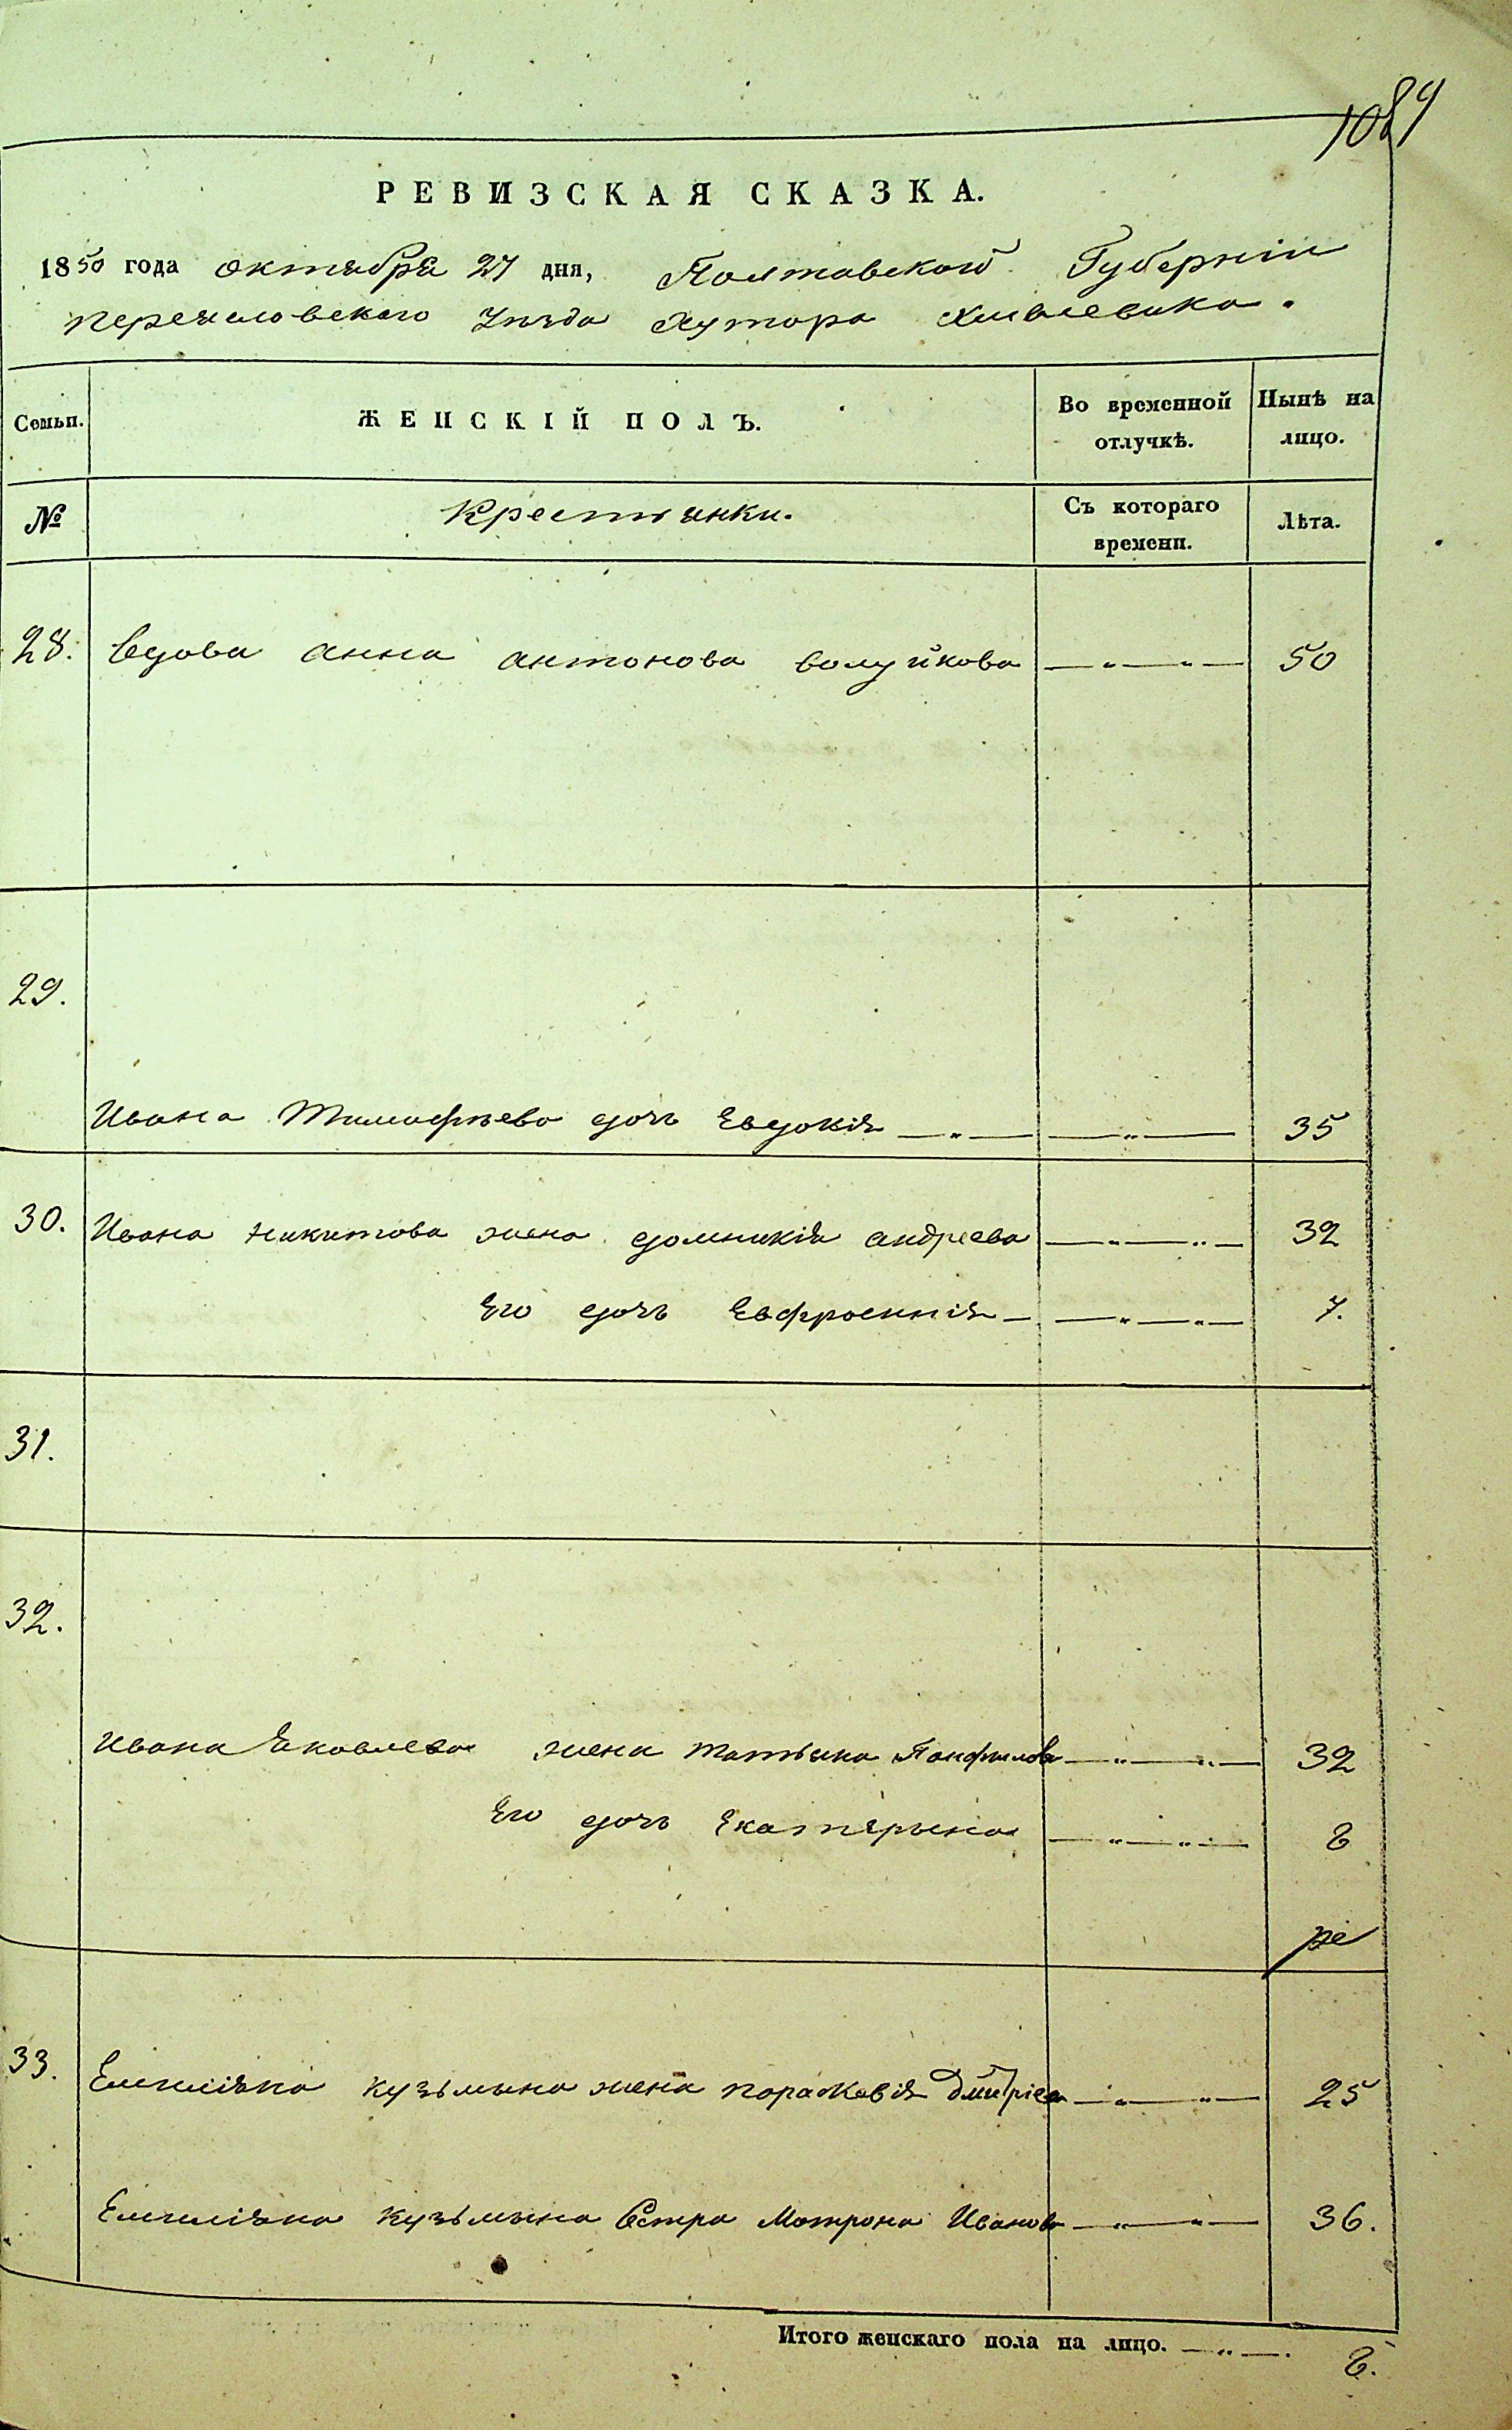 1089
РЕВИЗСКАЯ СКАЗКА.
1850 года октября 27 дня, Полтавской Губерніи
переяславского Уѣзда Хутора
Семьи. ЖЕНСКІЙ ПОЛЪ. Во временной отлучкѣ. Нынѣ на лицо.
№ Крестьянки. Съ котораго времени. Лѣта.
28. вдова анна антонова волуйкова 50
29.
Ивана Тимофѣева дочь Евдокія 35
30. Ивана никитова жена домникія андреева 32
Его дочь Евфросинія 7.
31.
32.
Ивана Яковлева жена татьяна Панфилова 32
Его дочь Екатерына 8
33. Емиліяна кузьмина жена параскевія Дмитріева 25
Емиліяна кузьмина Сестра Матрона Иванова 36.
Итого женскаго пола на лицо. 8.